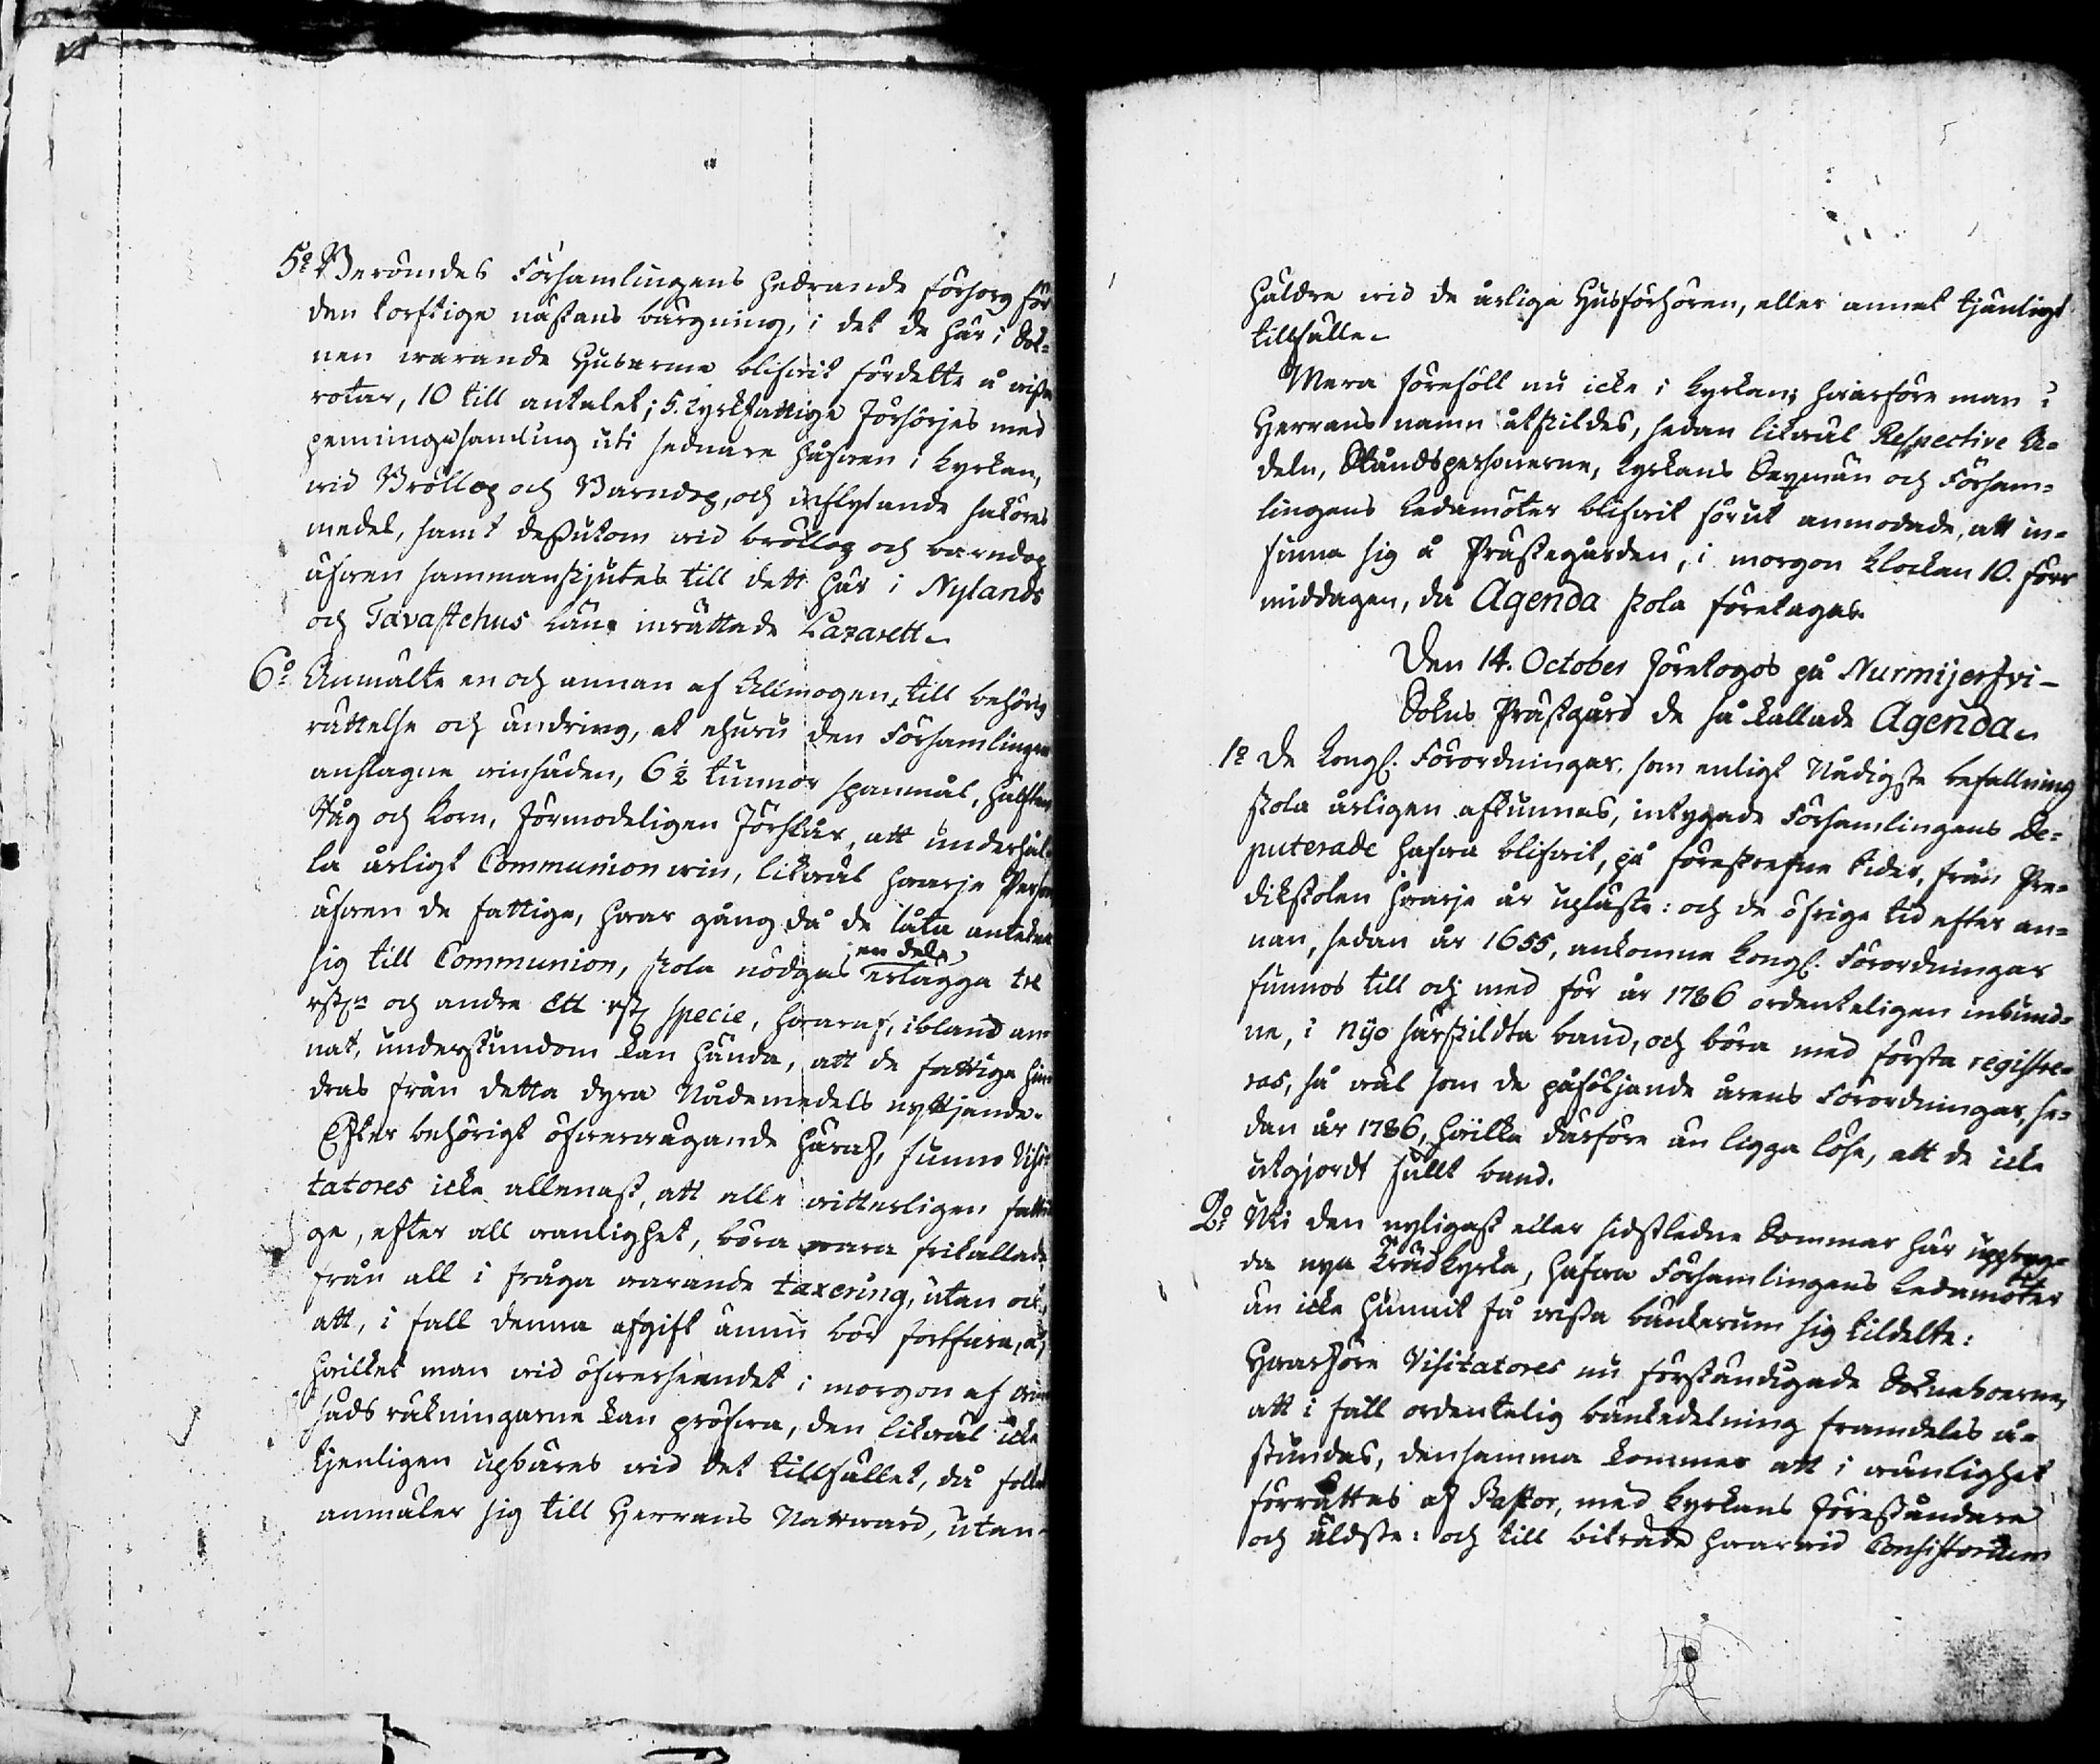 5:o Berömdes Församlingens hedrande försorg för
den torftige nästans bärgning, i det de här i Sok=
nen warande Husarme blifwit fördelte å wissa
rotar, 10 till antalet; 5. kyrkfattige försörjes med
penningesamling uti sednare håfwen i kyrkan,
wid Bröllop och Barndop, och inflytande saköres
medel, samt dessutom wid bröllop och barndop
äfwen sammanskjutes till dett här i Nylands
och Tavastehus Län inrättade Lazarett.
6:o Anmälte en och annan af Allmogen, till behörig
rättelse och ändring, at ehuru den Församlingen
anslagne winsäden, 6½ tunnor spanmål, hälften
Råg och Korn, förmodeligen förslår, att underhål=
la årligt Communion win, likwäl hwarje Person
äfwen de fattige, hwar gång då de låta antekna
sig till Communion, skola nödgas en dels erlägga tre
rst:r och andre Ett rst: specie, hwaraf, ibland an=
nat, understundom kan hända, att de fattige hin
dras från detta dyra Nådemedels nyttjande.
Efter behörigt öfwerwägande häraf, funno Visi
tatores icke allenast, att alle witterligen fatti
ge, efter all wanlighet, böra wara frikallade
från all i fråga warande taxering, utan ock,
att, i fall denna afgift ännu bör fortfara, af
hwilket man wid öfwerseendet i morgon af win
säds räkningarne kan pröfwa, den likwäl icke
tjenligen upbäres wid det tillfället, då folket
anmäler sig till Herrans Nattward, utan
häldre wid de årlige Husförhören, eller annat tjänligt
tillfälle.
Mera föreföll nu icke i kyrkan; hwarföre man i
Herrans namn åtskildes, sedan likwäl Respective A=
deln, Ståndspersonerne, kyrkans Sexmän och Försam=
lingens Ledamöter blifwit förut anmodade, att in=
finna sig å Prästegården, i morgon klockan 10. före
middagen, då Agenda skola företagas.
Den 14. October företogos på Nurmijerfvi-
Sokns Prästgård de så kallade Agenda.
1:o De Kongl. Förordningar, som enligt Nådigste befallning
skola årligen afkunnas, intygade Församlingens De=
puterade hafwa blifwit, på föreskrefne tider, från Pre=
dikstolen hwarje år upläste: och de öfrige tid efter an=
nan, sedan år 1655, ankomne Kongl. Förordningar
funnos till och med för år 1786 ordenteligen inbund=
ne, i nijo särskildta band, och böra med första registre=
ras, så wäl som de påföljande årens Förordningar, se=
dan år 1786, hwilka därföre än ligga löse, att de icke
utgjordt fullt band.
2:o Uti den nyligast eller sidstledne Sommar här upbyg=
da nya Trädkyrka, hafwa Församlingens Ledamöter
än icke hunnit få wissa bänkerum sig tildelte:
Hwarföre Visitatores nu förständigade Sokneboerne,
att i fall ordentelig bänkedelning framdeles å=
stundas, densamma kommer att i wänlighet
förrättas af Pastor, med kyrkans föreståndare
och äldste: och till biträde hwarwid Consistorium